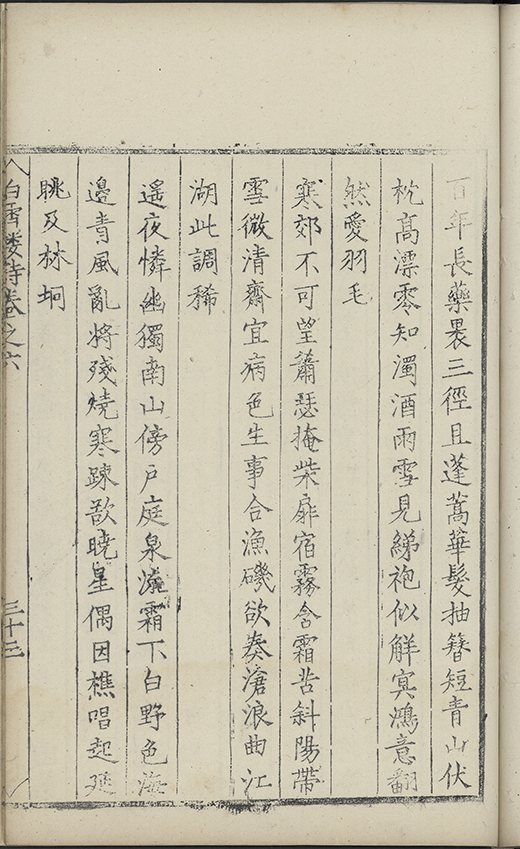 百年長藥褁三徑且蓬蒿華髮抽簪短青山伏
枕高漂零知濁酒雨雪見綈袍似觧㝠鴻意翻
然愛羽毛
寒郊不可望蕭瑟掩柴扉宿霧含霜苦斜陽帶
雪微清齋宜病色生事合漁磯欲奏滄浪曲江
湖此調稀
遥夜憐幽獨南山傍戸庭泉流霜下白野色海
邊青風亂將殘燒寒踈欲曉星偶因樵唱起延
眺及林坰
白雪樓詩卷之六
三十三